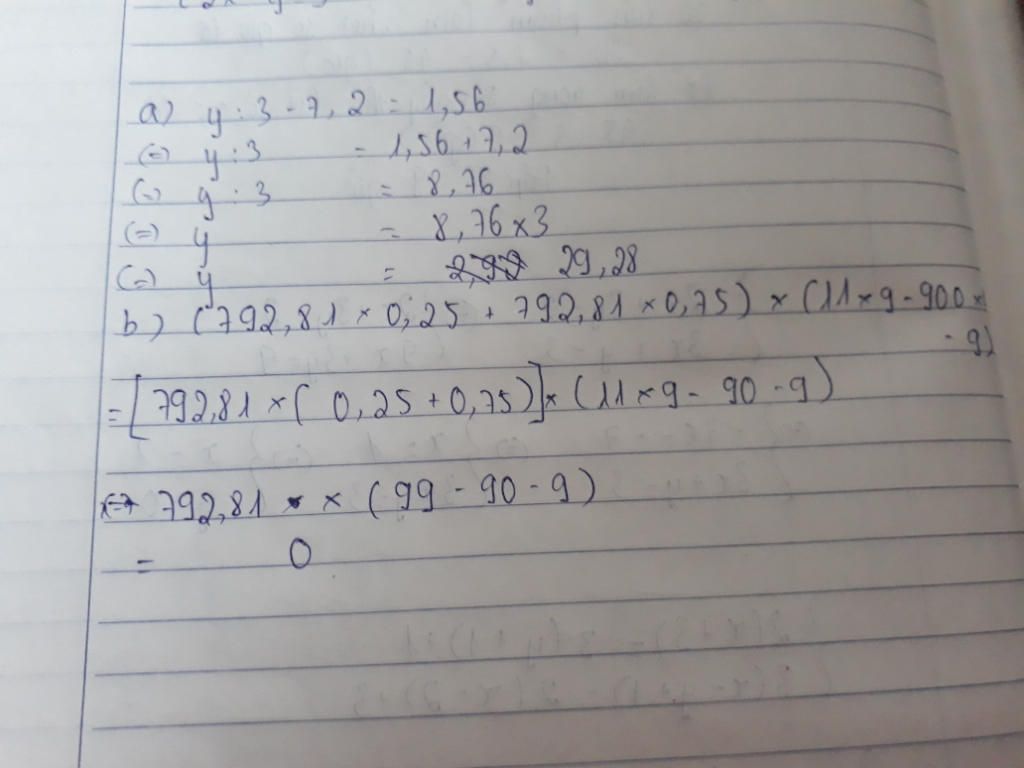 a) y : 3 - 7,2 = 1,56
(=) y : 3 = 1,56 + 7,2
(=) y : 3 = 8,76
(=) y = 8,76 x 3
(=) y = 2,92 29,28
b) (792,81 x 0,25 + 792,81 x 0,75) x (11 x 9 - 900 x
- 9)
= [792,81 x ( 0,25 + 0,75)] x (11 x 9 - 90 - 9)
792,81 x (99 - 90 - 9)
= 0